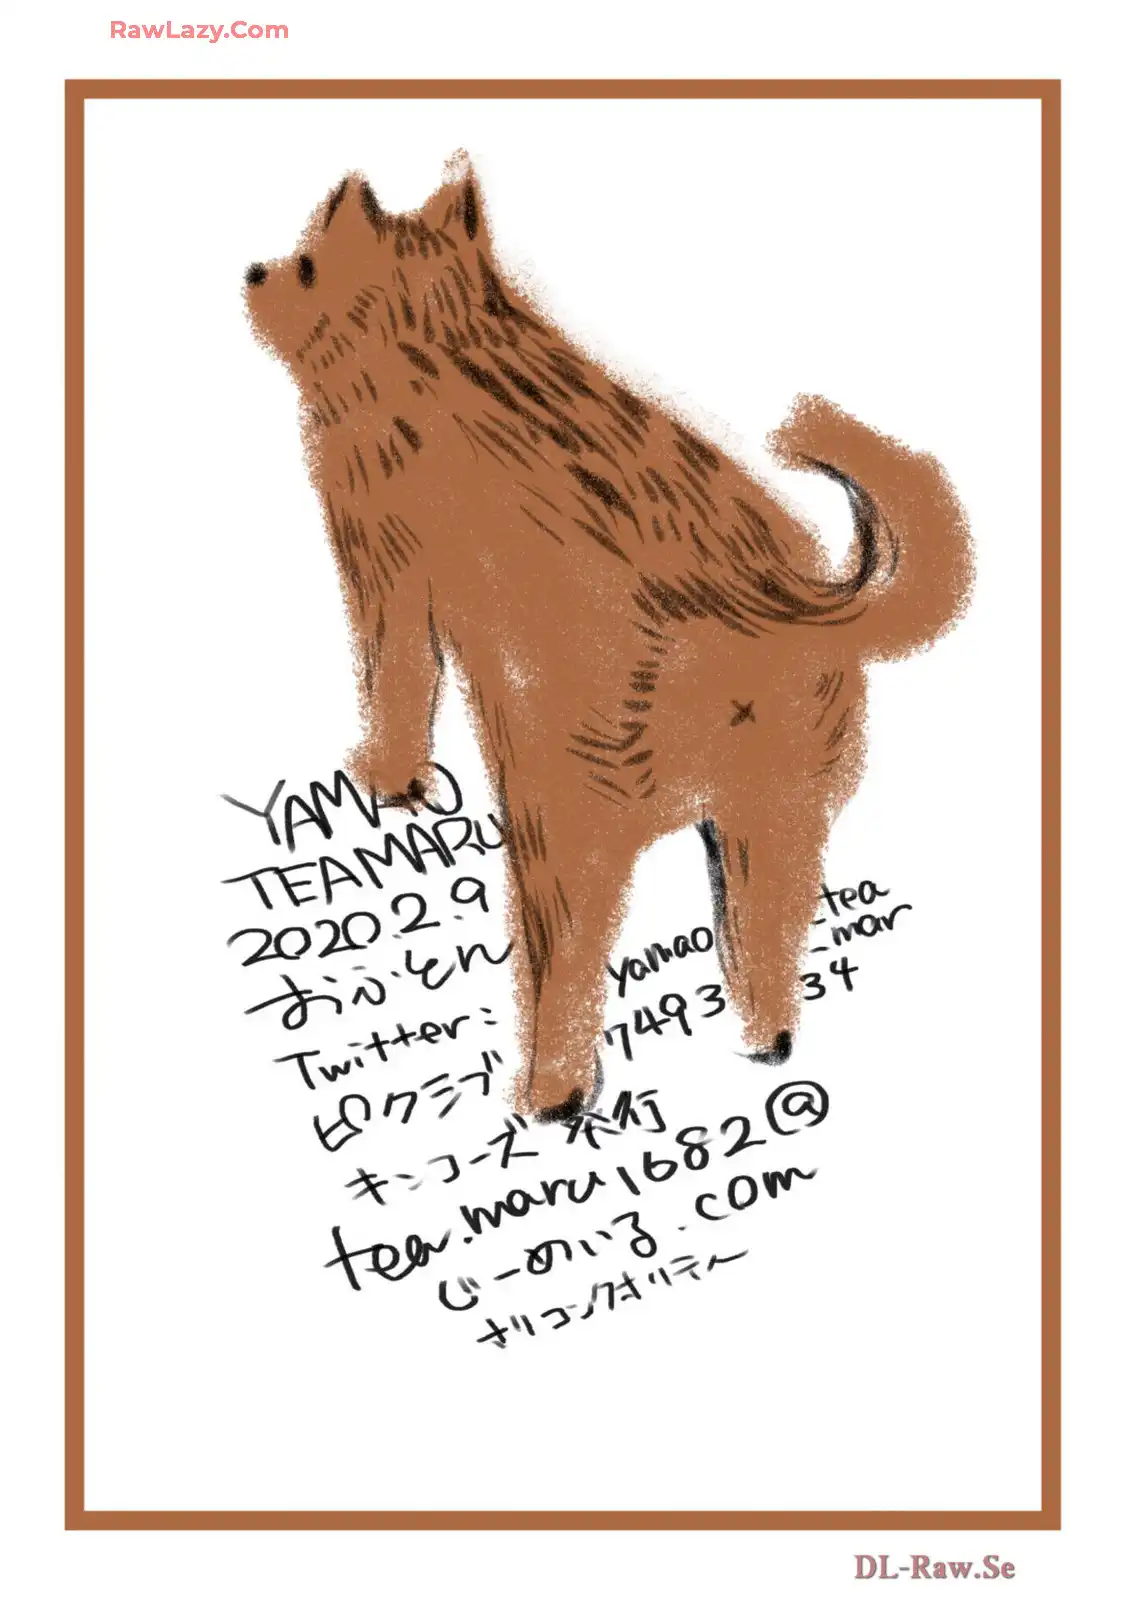 RawLazy.Com
YAMAO
TEAMARU
2020.2.9
おふとん
Twitter: yamao_tea_mar
ピクシブ 7493334
キンコーズ 発行
tea.maru1682@
じーめいる.com
オリコンクオリティー
DL-Raw.Se